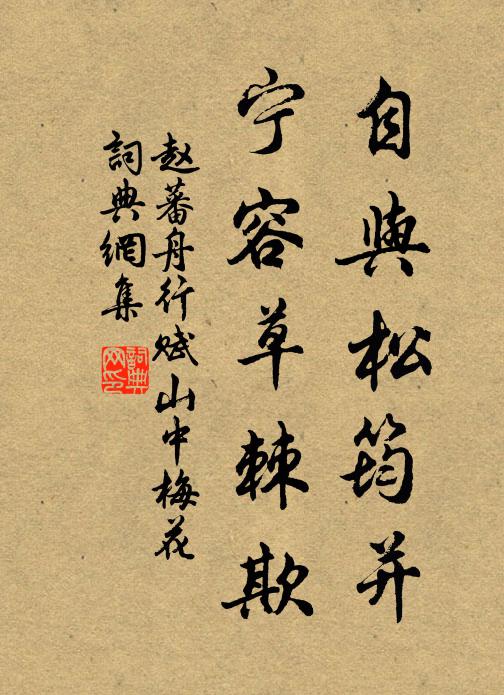 自與松筠并
宁容草棘欺
赵蕃舟行赋山中梅花
詞典網集
詞典网印